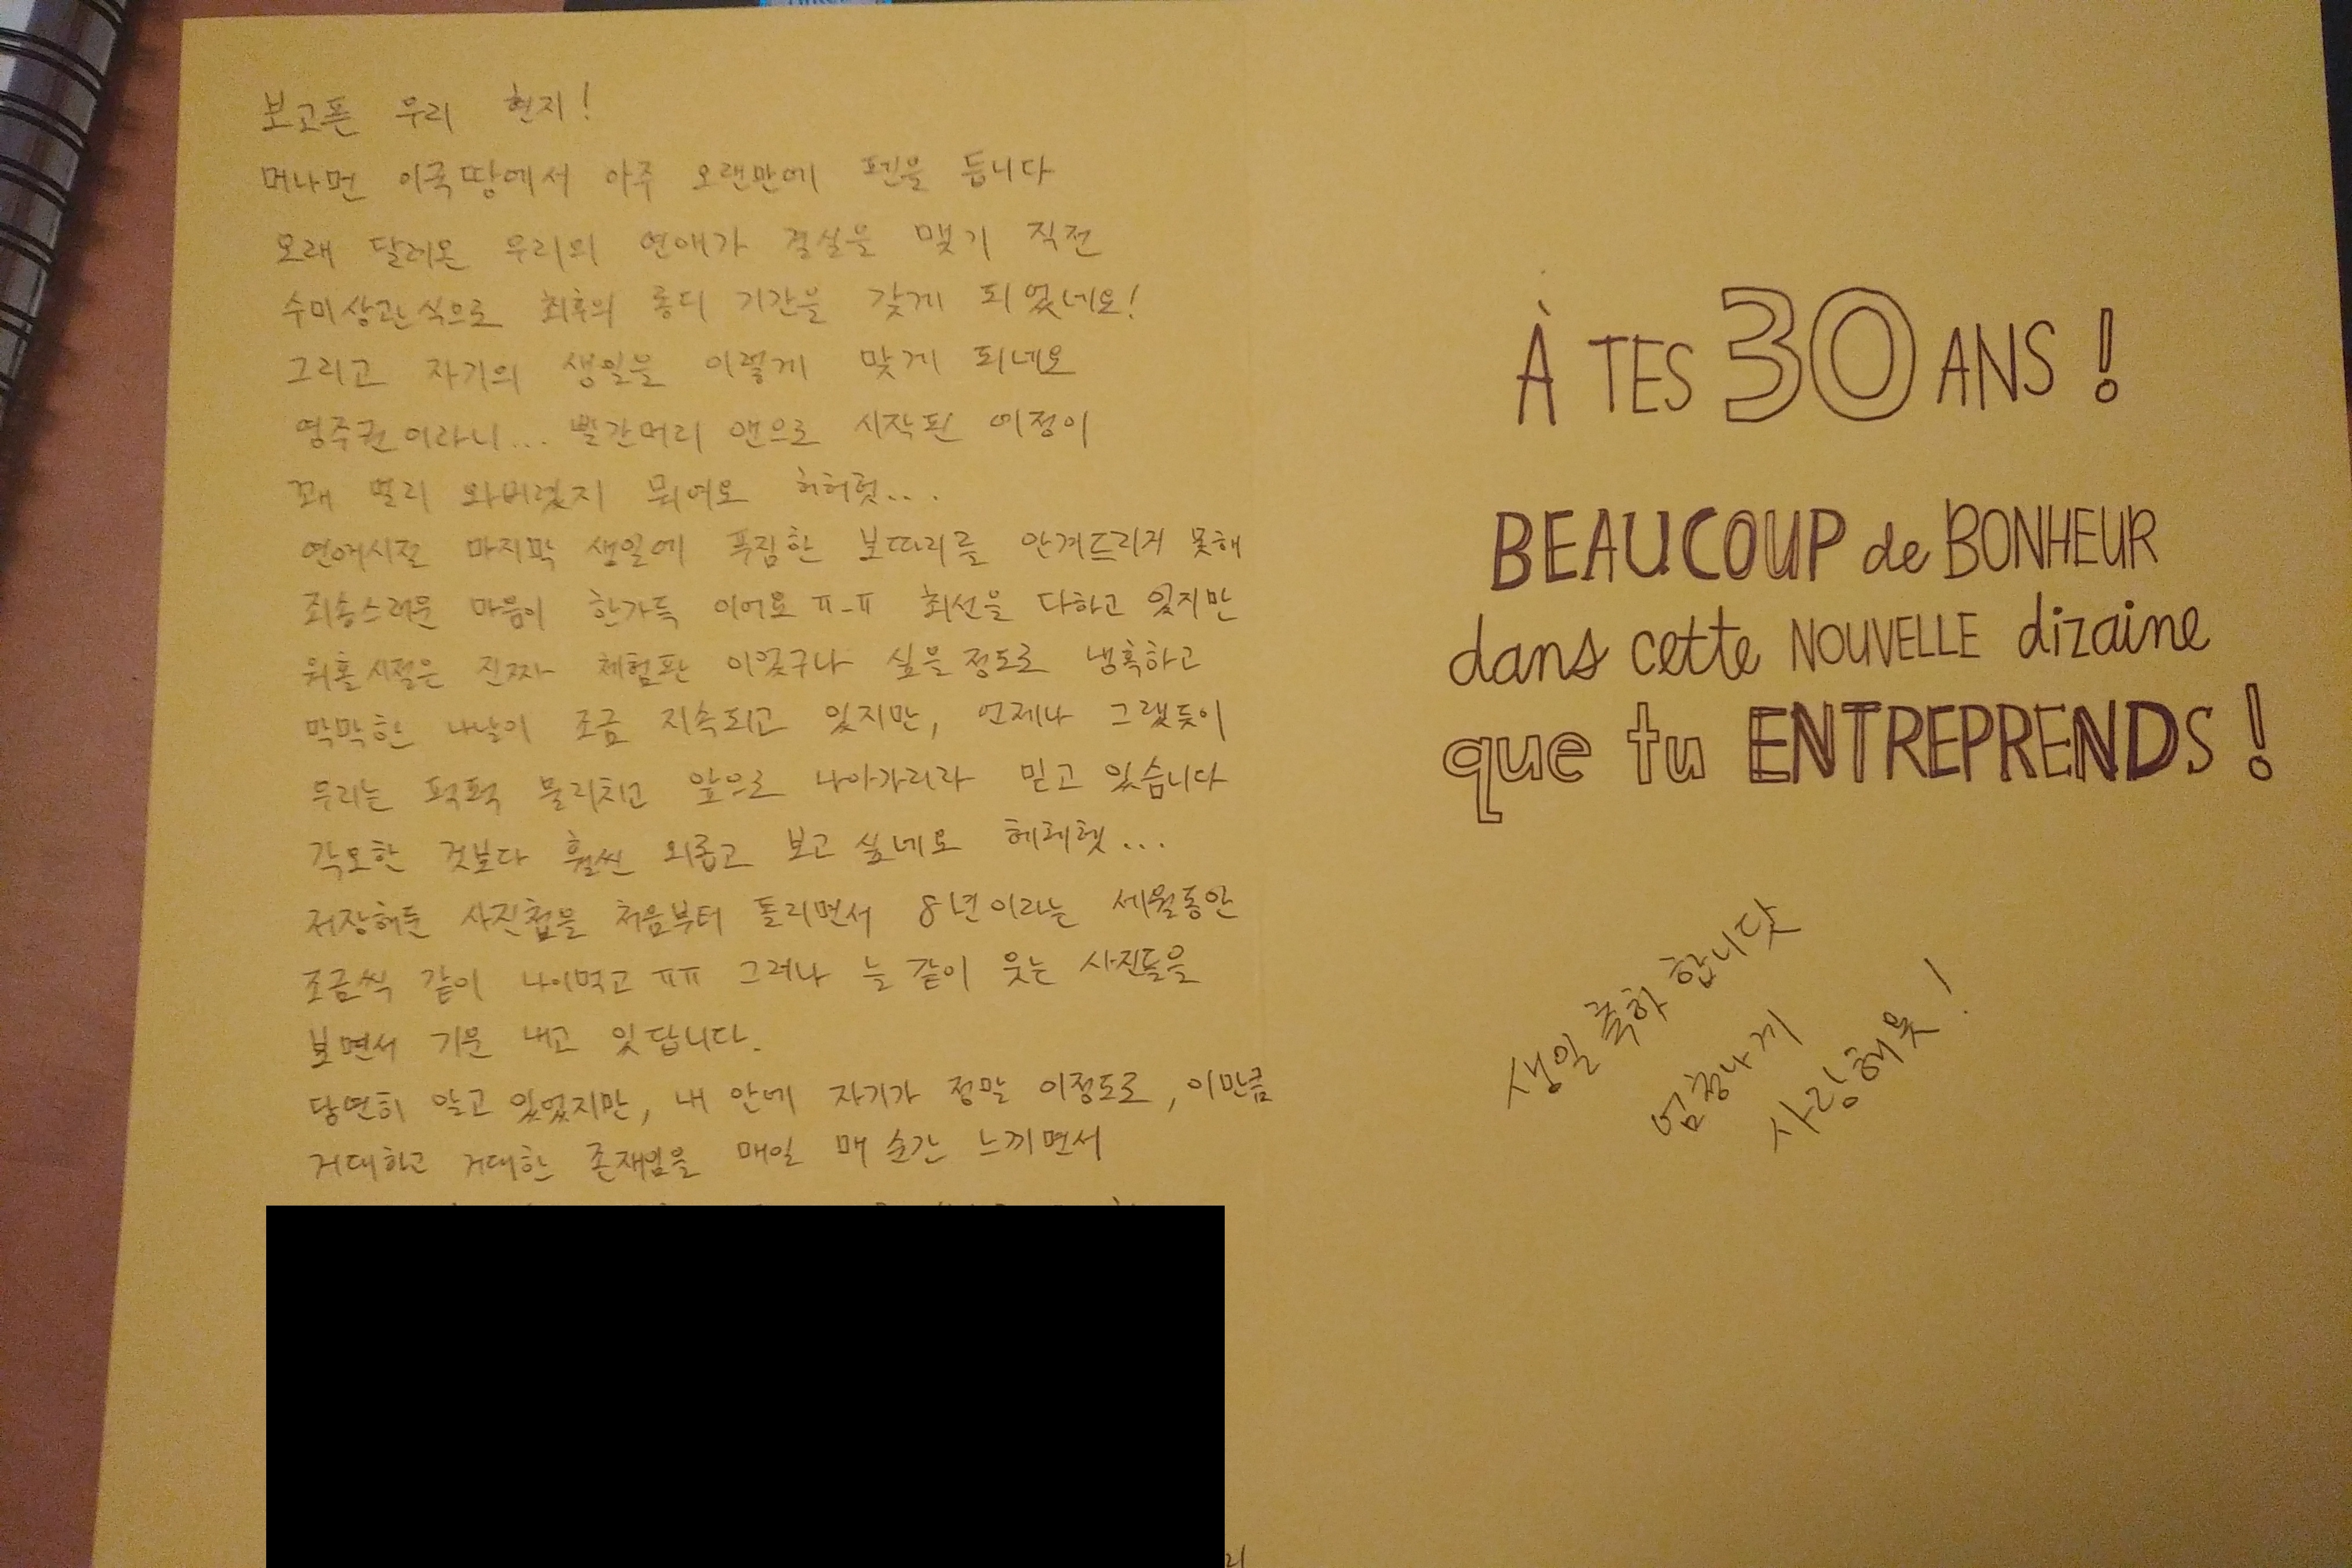 보고픈 우리 현지!
머나먼 이국땅에서 아주 오랜만에 펜을 듭니다
오래 달려온 우리의 연애가 결실을 맺기 직전
수미상관식으로 최후의 롱디 기간을 갖게 되었네요!
그리고 자기의 생일을 이렇게 맞게 되네요
영주권이라니... 빨간머리 앤으로 시작된 여정이
꽤 멀리 와버렸지 뭐여요 허허헛...
연애시절 마지막 생일에 푸짐한 보따리를 안겨드리지 못해
죄송스러운 마음이 한가득 이어요 ㅠ-ㅠ 최선을 다하고 있지만
워홀시절은 진짜 체험판 이었구나 싶을정도로 냉혹하고
막막한 나날이 조금 지속되고 있지만, 언제나 그랬듯이
우리는 퍽퍽 물리치고 앞으로 나아가리라 믿고 있습니다
각오한 것보다 훨씬 외롭고 보고싶네요 헤헤헷...
저장해둔 사진첩을 처음부터 돌리면서 8년이라는 세월동안
조금씩 같이 나이먹고 ㅠㅠ 그러나 늘 같이 웃는 사진들을
보면서 기운 내고 있답니다.
당연히 알고 있었지만, 내 안에 자기가 정말 이정도로, 이만큼
거대하고 거대한 존재임을 매일 매 순간 느끼면서
À TES 30 ANS !
BEAUCOUP de BONHEUR
dans cette NOUVELLE dizaine
que tu ENTREPRENDS !
생일 축하 합니닷
엄청나게
사랑해욧!